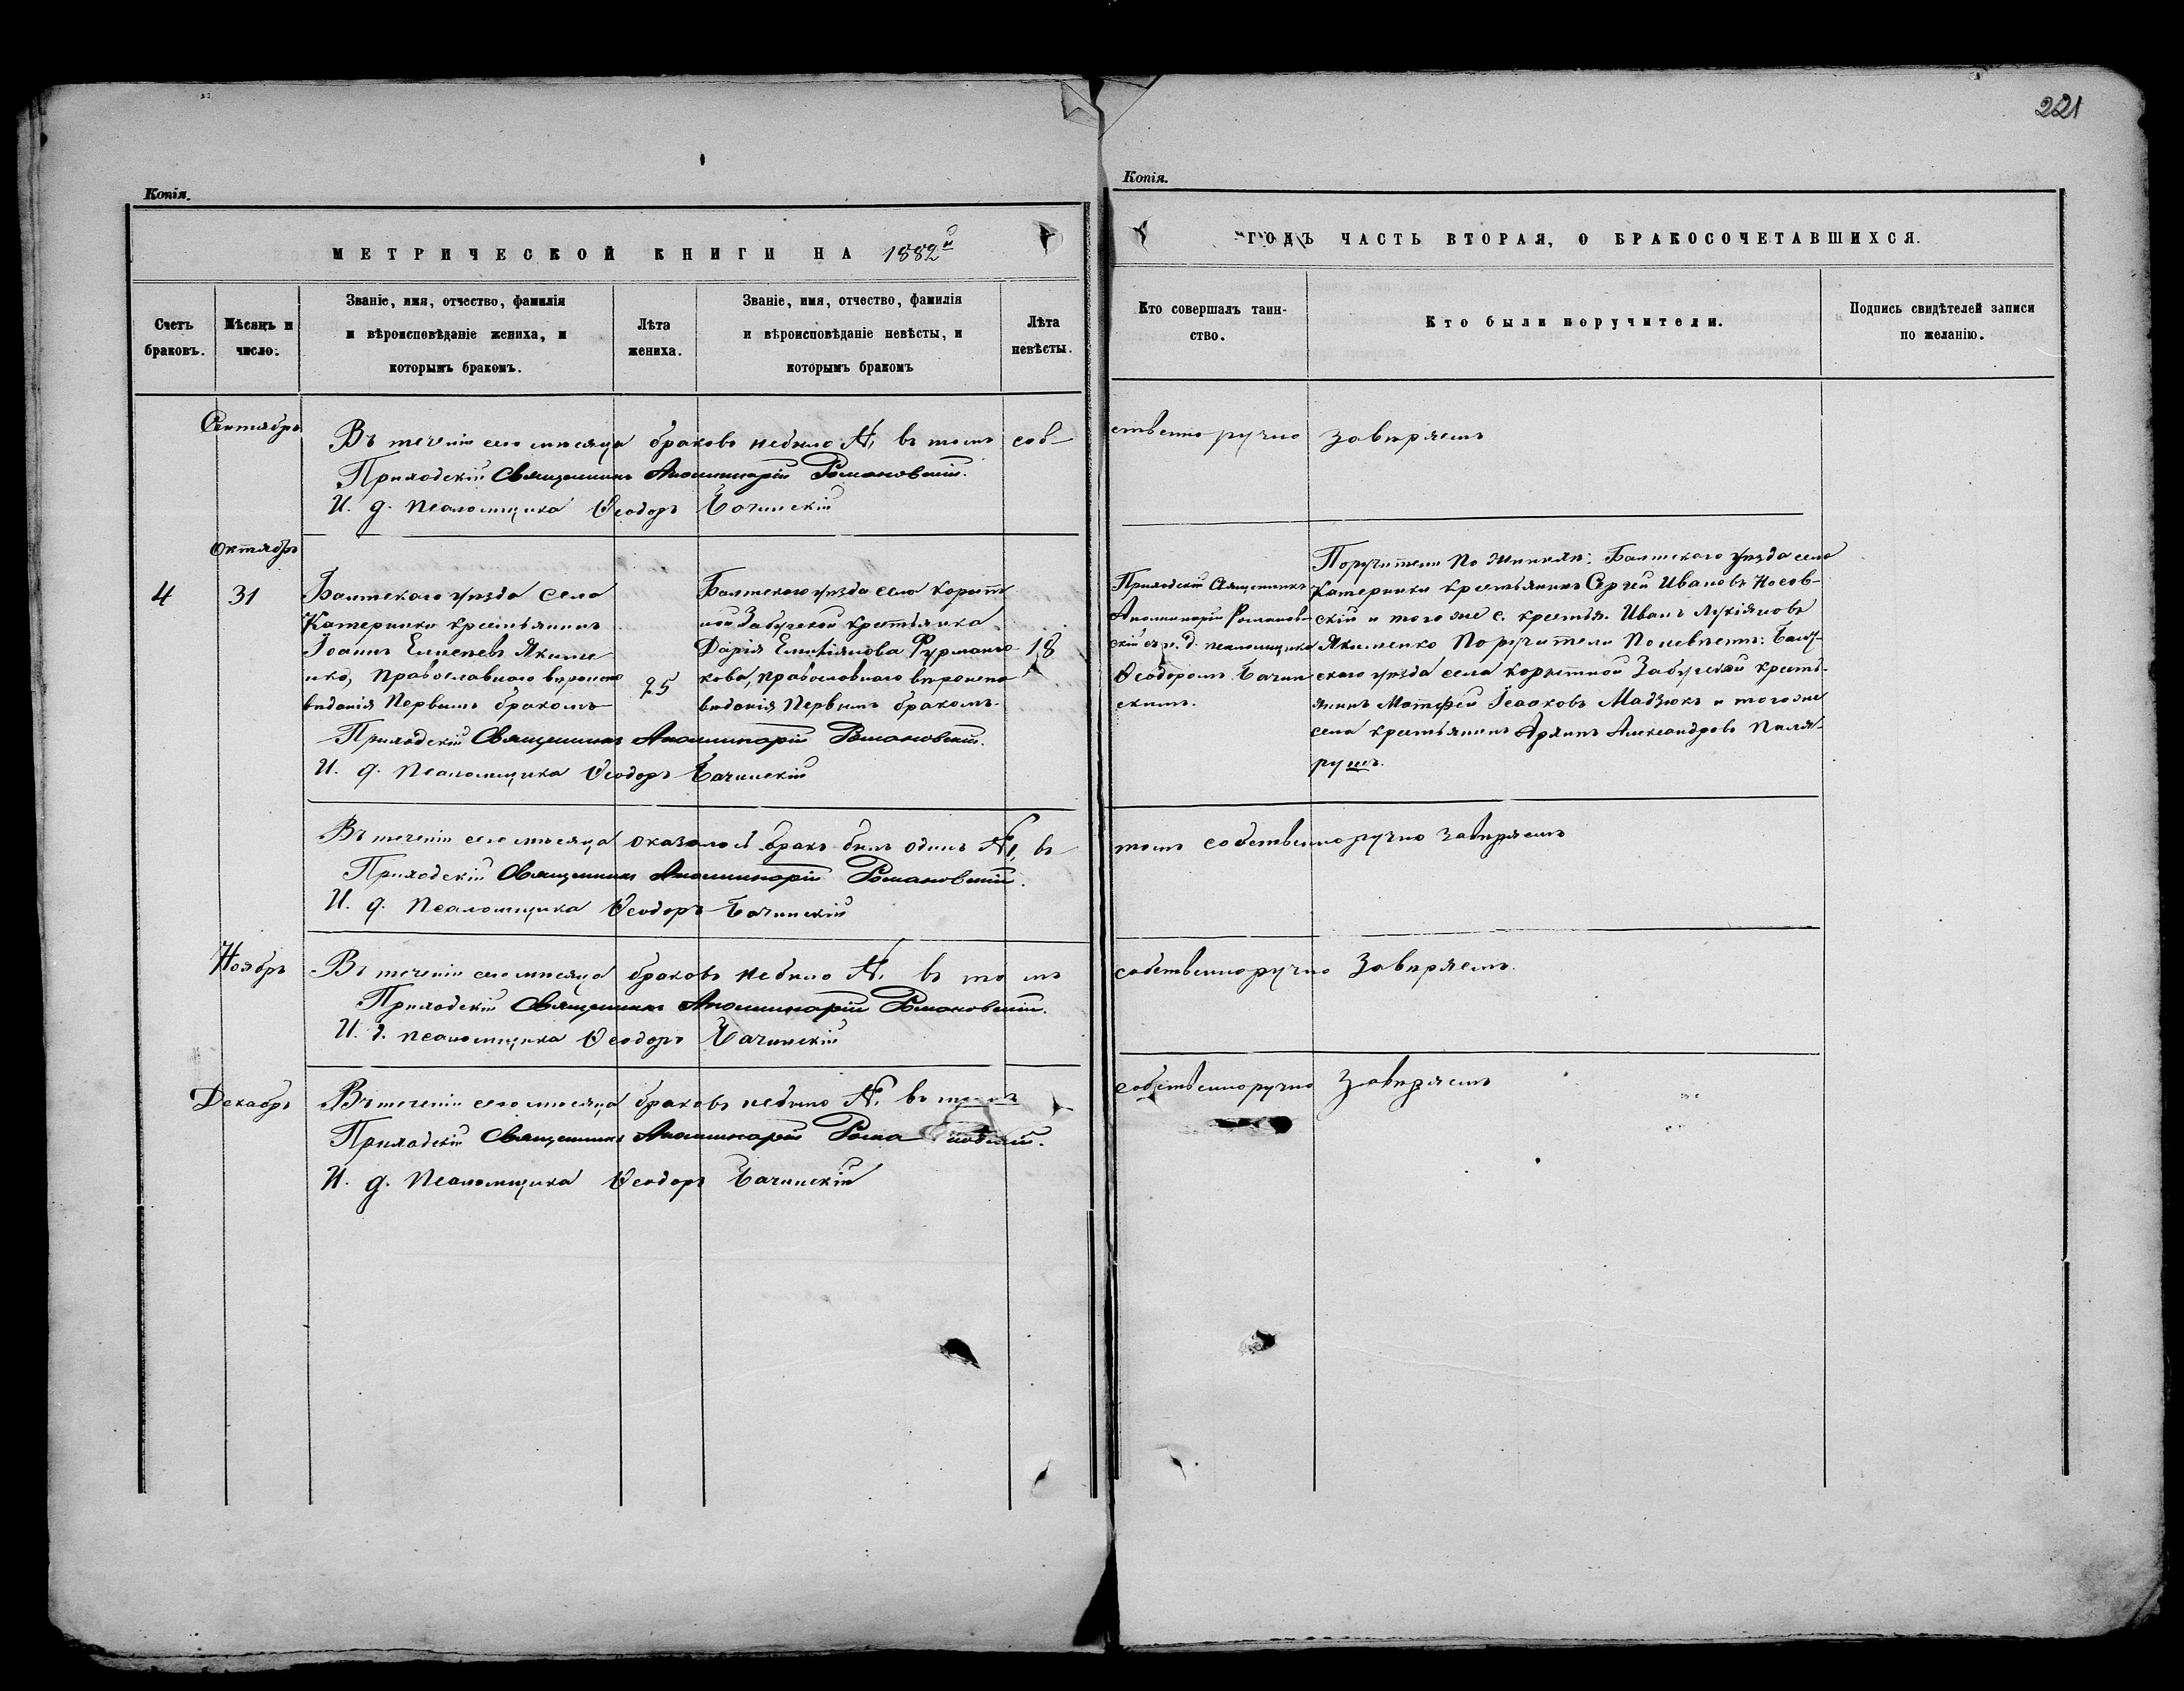 221
Копія.
МЕТРИЧЕСКОЙ КНИГИ НА 1882й
Счетъ браковъ.
Мѣсяцъ и число.
Званіе, имя, отчество, фамилія и вѣроисповѣданіе жениха, и которымъ бракомъ.
Лѣта жениха.
Званіе, имя, отчество, фамилія и вѣроисповѣданіе невѣсты, и которымъ бракомъ
Лѣта невѣсты.
Копія.
ГОДЪ ЧАСТЬ ВТОРАЯ, О БРАКОСОЧЕТАВШИХСЯ.
Кто совершалъ таинство.
Кто были поручители.
Подпись свидѣтелей записи по желанію.
Сентябрь
Въ теченіи сего мѣсяца браковъ небыло №, въ томъ соб-
ственно ручно завѣряемъ
Приходскій Священникъ Аполлинарій Романовскій.
И. д. Псаломщика Ѳеодоръ Бачинскій
Октябрь
4
31
Балтскаго уѣзда села
Катеринки крестьянинъ
Іоаннъ Елисеевъ Якиме-
нко, Православнаго вѣроиспо
вѣданія Первымъ бракомъ
25
Балтскаго уѣзда села Корыт
ной Забугской крестьянка
Дарія Емиліянова Фурманю-
кова, православнаго вѣроиспо
вѣданія Первымъ бракомъ.
18
Приходскій Священникъ
Аполлинарій Романов-
скій съ и. д. псаломщика
Ѳеодоромъ Бачин
скимъ.
Поручители По женихѣ: Балтскаго уѣзда села
Катеринки крестьянинъ Сергій Ивановъ Носов-
скій и того же с. крестья. Иванъ Лукіяновъ
Якименко Поручители По невѣстѣ: Балт-
скаго уѣзда села Корытной Забугской кресть-
янинъ Матѳей Ісааковъ Мадзюкъ и того же
села крестьянинъ Архипъ Александровъ Паля-
рушъ.
Приходскій Священникъ Аполлинарій Романовскій.
И. д. Псаломщика Ѳеодоръ Бачинскій
Въ теченіи сего мѣсяца оказалось бракъ былъ одинъ №1, въ
томъ собственноручно завѣряемъ
Приходскій Священникъ Аполлинарій Романовскій.
И. д. Псаломщика Ѳеодоръ Бачинскій
Ноябрь
Въ теченіи сего мѣсяца браковъ небыло №, въ томъ
собственноручно Завѣряемъ.
Приходскій Священникъ Аполлинарій Романовскій.
И. д. псаломщика Ѳеодоръ Бачинскій
Декабрь
Въ теченіи сего мѣсяца браковъ небыло №, въ томъ
собственноручно Завѣряемъ
Приходскій Священникъ Аполлинарій Романовскій.
И. д. Псаломщика Ѳеодоръ Бачинскій